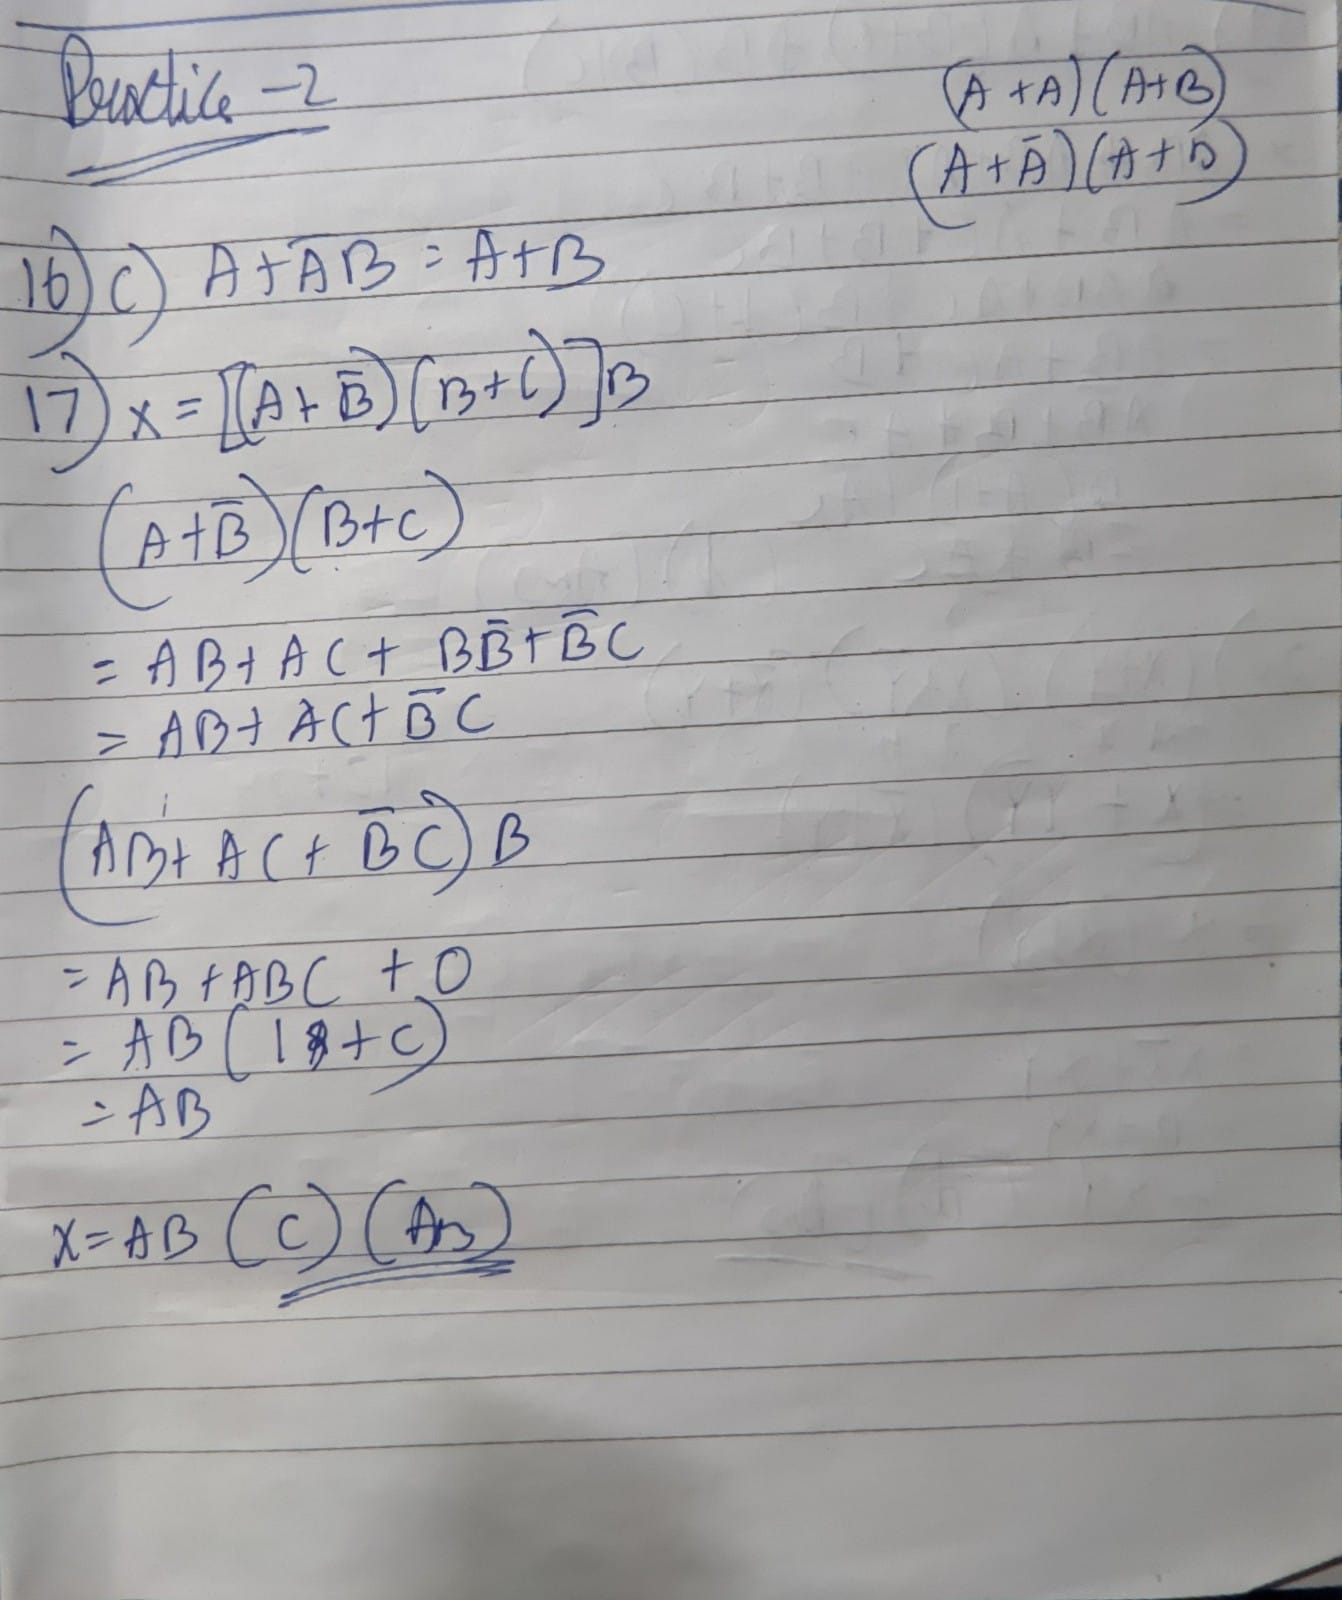 Practice - 2
(A + A) (A+B)
(A + Ā) (A + B)
16) c) A + ĀB = A+B
17) x = [(A + B̄) (B+C)]B
(A + B̄) (B+C)
= AB + AC + BB̄ + B̄C
= AB + AC + B̄C
(AB + AC + B̄C) B
= AB + ABC + 0
= AB (1 + C)
= AB
X = AB (C) (Ans)